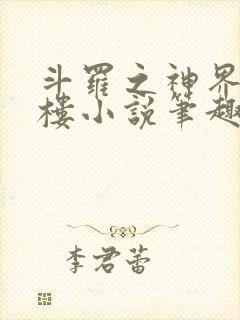 斗羅之神界
樓小說筆趣
李君蕾